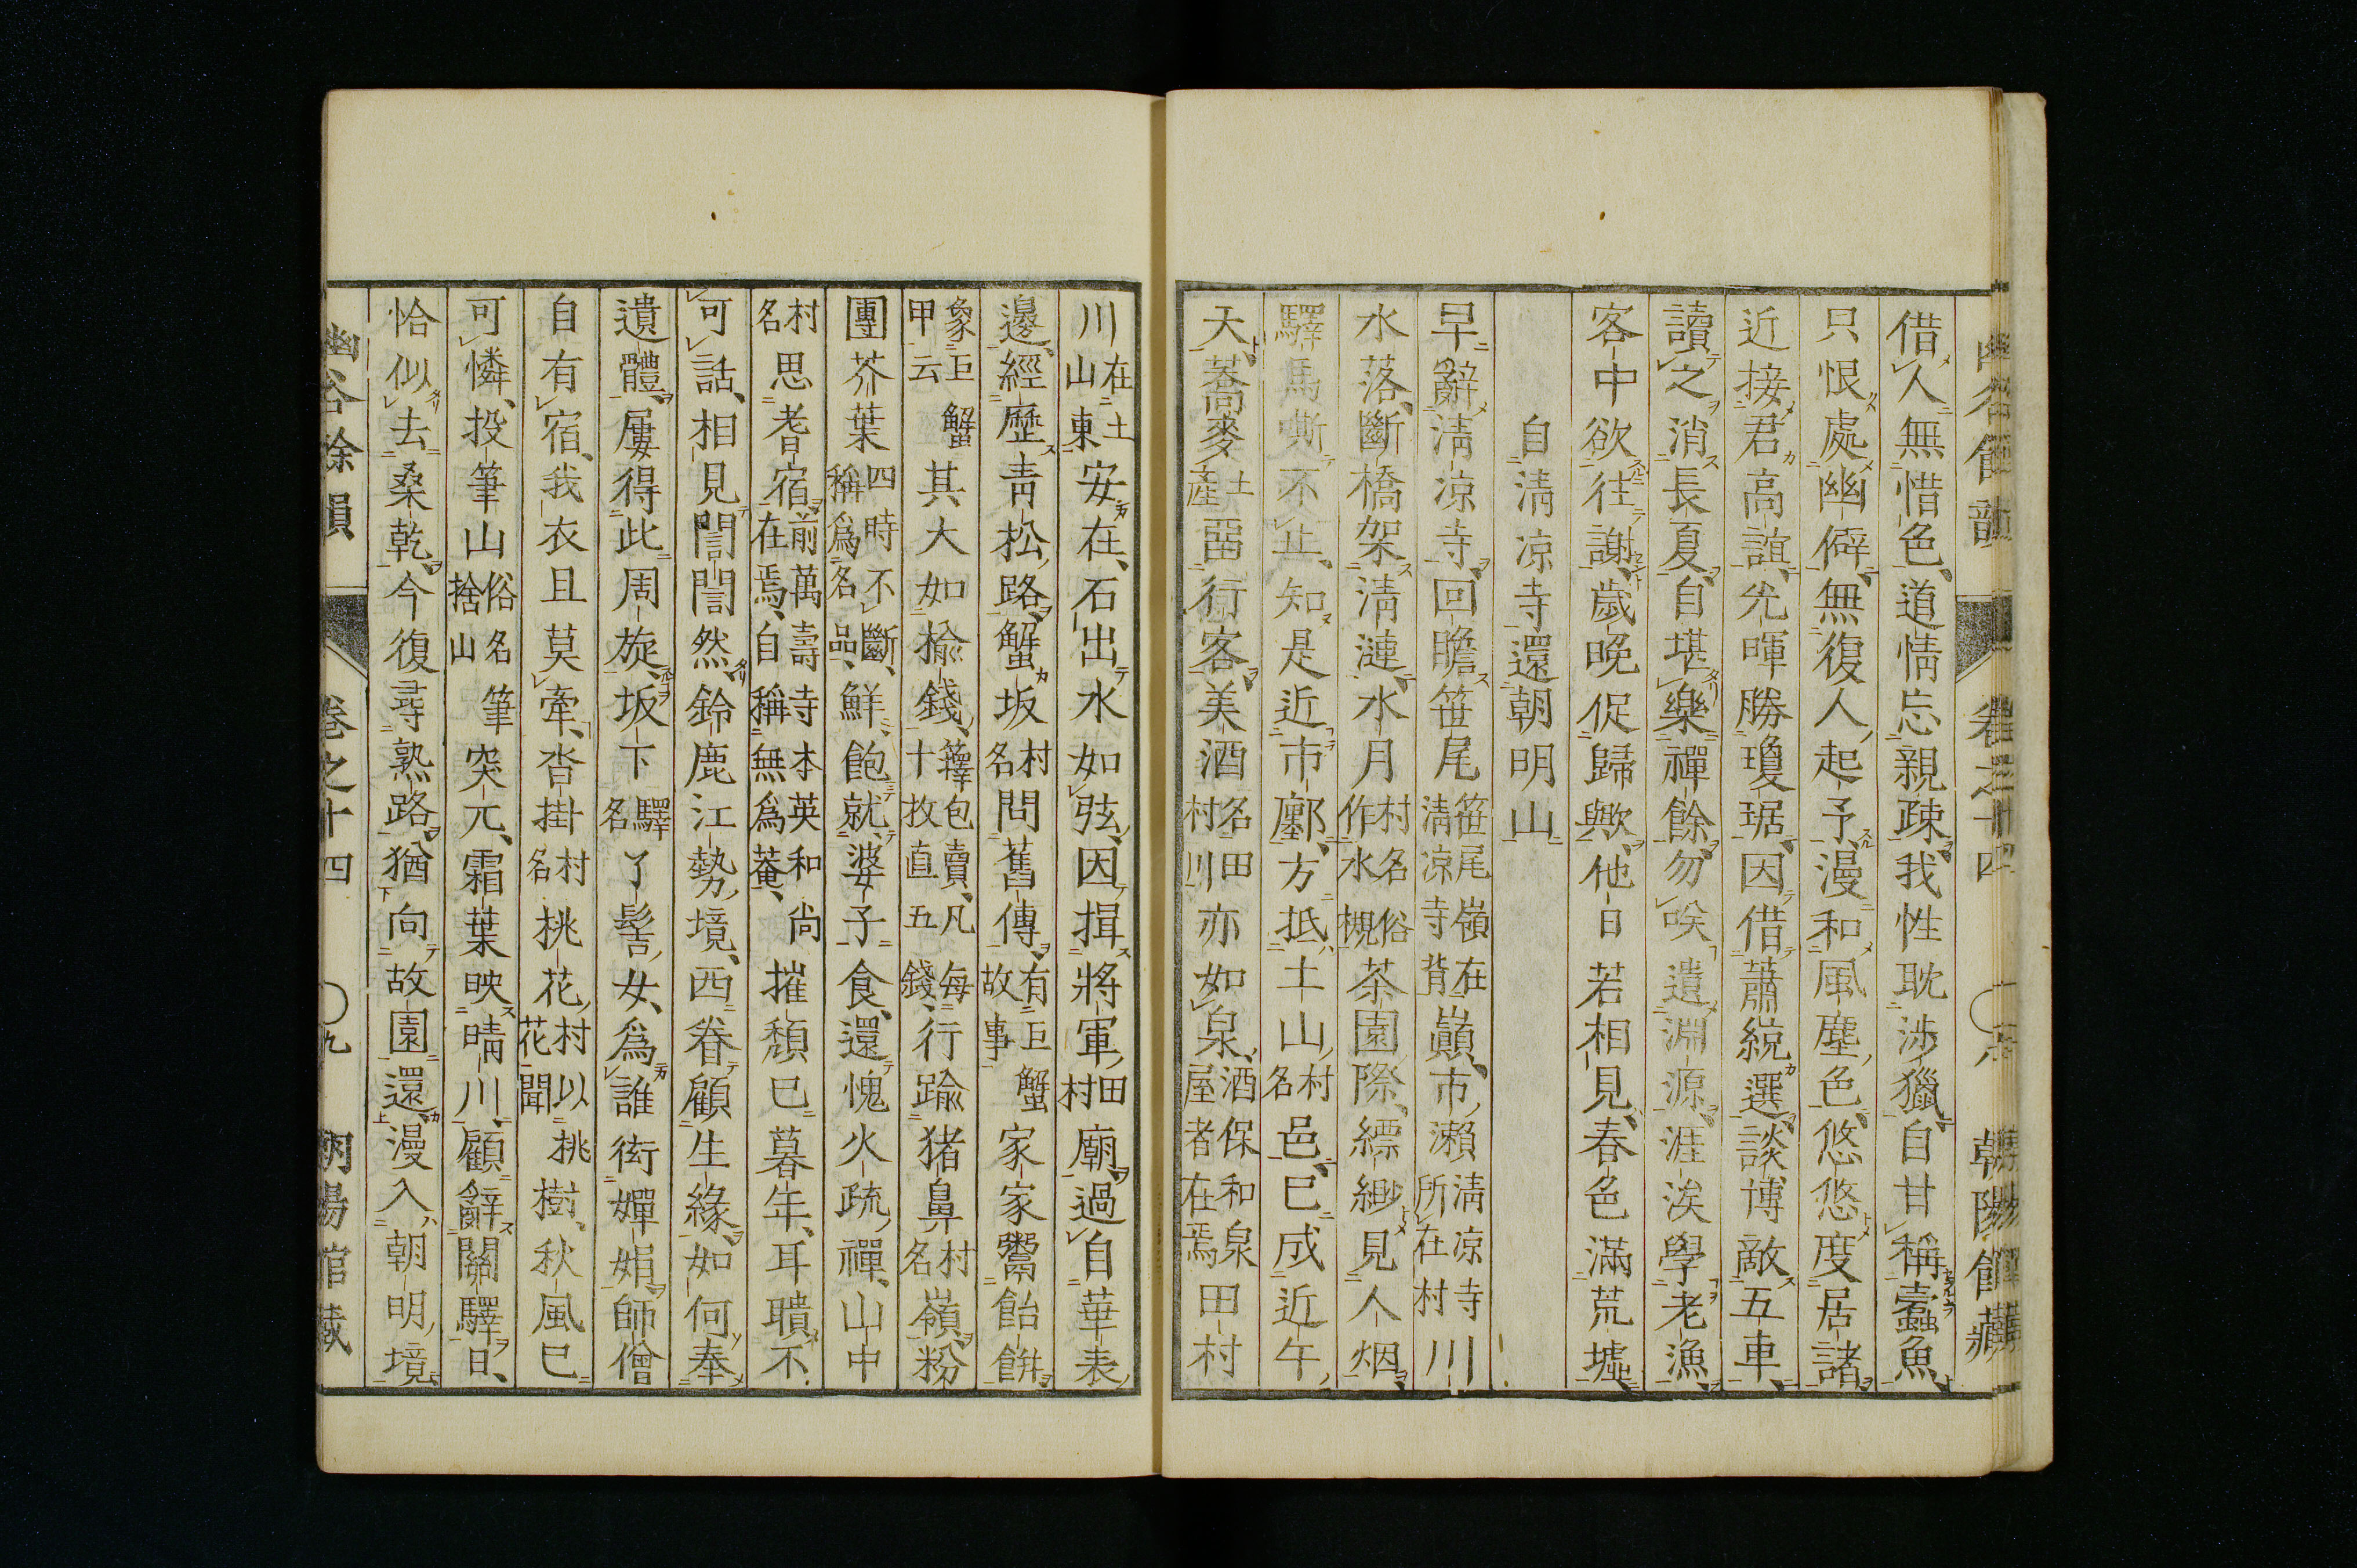 借人無惜色道情忘親疎我性耽渉獵自甘稱蠹魚
只恨處幽僻無復人起予漫和風塵色悠悠度居諸
近接君高誼光暉勝瓊琚因借蕭統選談博敵五車
讀之消長夏自堪樂禪餘勿唉遺淵源涯涘學老漁
客中欲往謝歲晩促歸歟他日若相見春色滿荒墟
自淸凉寺還朝明山
早辭淸凉寺回瞻笹尾笹尾嶺在淸凉寺背巓市瀨淸凉寺所在村川
水落斷橋架淸漣水月村名俗作水槻茶園際縹緲見人烟
驛馬嘶不止知是近市鄽方抵土山村名邑巳成近午
天蕎麥土產畱行客美酒名田村川亦如泉酒保和泉屋者在焉田村
川在土山東安在石出水如弦因揖將軍田村廟過自華表
邊經歷靑松路蟹坂村名問舊傳有巨蟹故事家家鬻飴餠
象巨蟹甲云其大如楡錢籜包賣凡每十枚直五錢行踰猪鼻村名嶺粉
團芥葉四時不斷稱爲名品鮮飽就婆子食還愧火疏禪山中
村名思耆宿前萬壽寺本英和尚在焉自稱無爲菴摧頽巳暮年耳聵不
可話相見誾誾然鈴鹿江勢境西眷顧生緣如何奉
遺體屢得此周旋坂下驛名了髻女爲誰衒嬋娟師僧
自有宿我衣且莫牽沓掛村名桃花村以桃花聞樹秋風巳
可憐投筆山俗名筆捨山突兀霜葉映晴川顧辭關驛日
恰似去桑乾今復尋熟路猶向故園還漫入朝明境
幽谷餘韻 卷之十四 〇九 朝陽館藏